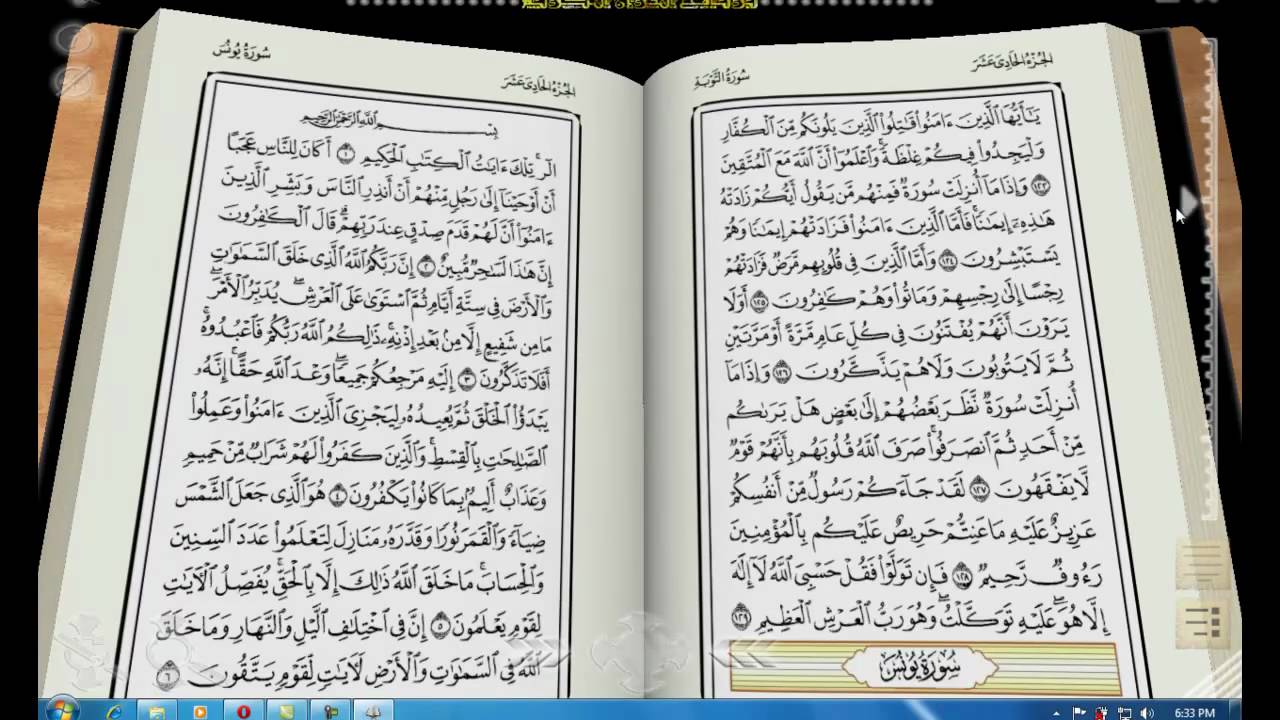 سُورَةُ التَّوْبَةِ
الجُزْءُ الحَادِيَ عَشَرَ
يَـٰٓأَيُّهَا ٱلَّذِينَ ءَامَنُوا۟ قَـٰتِلُوا۟ ٱلَّذِينَ يَلُونَكُم مِّنَ ٱلْكُفَّارِ
وَلْيَجِدُوا۟ فِيكُمْ غِلْظَةً ۚ وَٱعْلَمُوٓا۟ أَنَّ ٱللَّهَ مَعَ ٱلْمُتَّقِينَ
١٢٣ وَإِذَا مَآ أُنزِلَتْ سُورَةٌ فَمِنْهُم مَّن يَقُولُ أَيُّكُمْ زَادَتْهُ
هَـٰذِهِۦٓ إِيمَـٰنًا ۚ فَأَمَّا ٱلَّذِينَ ءَامَنُوا۟ فَزَادَتْهُمْ إِيمَـٰنًا وَهُمْ
يَسْتَبْشِرُونَ ١٢٤ وَأَمَّا ٱلَّذِينَ فِى قُلُوبِهِم مَّرَضٌ فَزَادَتْهُمْ
رِجْسًا إِلَىٰ رِجْسِهِمْ وَمَاتُوا۟ وَهُمْ كَـٰفِرُونَ ١٢٥ أَوَلَا
يَرَوْنَ أَنَّهُمْ يُفْتَنُونَ فِى كُلِّ عَامٍ مَّرَّةً أَوْ مَرَّتَيْنِ
ثُمَّ لَا يَتُوبُونَ وَلَا هُمْ يَذَّكَّرُونَ ١٢٦ وَإِذَا مَآ
أُنزِلَتْ سُورَةٌ نَّظَرَ بَعْضُهُمْ إِلَىٰ بَعْضٍ هَلْ يَرَىٰكُم
مِّنْ أَحَدٍ ثُمَّ ٱنصَرَفُوا۟ ۚ صَرَفَ ٱللَّهُ قُلُوبَهُم بِأَنَّهُمْ قَوْمٌ
لَّا يَفْقَهُونَ ١٢٧ لَقَدْ جَآءَكُمْ رَسُولٌ مِّنْ أَنفُسِكُمْ
عَزِيزٌ عَلَيْهِ مَا عَنِتُّمْ حَرِيصٌ عَلَيْكُم بِٱلْمُؤْمِنِينَ
رَءُوفٌ رَّحِيمٌ ١٢٨ فَإِن تَوَلَّوْا۟ فَقُلْ حَسْبِىَ ٱللَّهُ لَآ إِلَـٰهَ
إِلَّا هُوَ ۖ عَلَيْهِ تَوَكَّلْتُ ۖ وَهُوَ رَبُّ ٱلْعَرْشِ ٱلْعَظِيمِ ١٢٩
سُورَةُ يُونُسَ
سُورَةُ يُونُسَ
الجُزْءُ الحَادِيَ عَشَرَ
بِسْمِ ٱللَّهِ ٱلرَّحْمَـٰنِ ٱلرَّحِيمِ
الٓر ۚ تِلْكَ ءَايَـٰتُ ٱلْكِتَـٰبِ ٱلْحَكِيمِ ١ أَكَانَ لِلنَّاسِ عَجَبًا
أَنْ أَوْحَيْنَآ إِلَىٰ رَجُلٍ مِّنْهُمْ أَنْ أَنذِرِ ٱلنَّاسَ وَبَشِّرِ ٱلَّذِينَ
ءَامَنُوٓا۟ أَنَّ لَهُمْ قَدَمَ صِدْقٍ عِندَ رَبِّهِمْ ۗ قَالَ ٱلْكَـٰفِرُونَ
إِنَّ هَـٰذَا لَسَـٰحِرٌ مُّبِينٌ ٢ إِنَّ رَبَّكُمُ ٱللَّهُ ٱلَّذِى خَلَقَ ٱلسَّمَـٰوَٰتِ
وَٱلْأَرْضَ فِى سِتَّةِ أَيَّامٍ ثُمَّ ٱسْتَوَىٰ عَلَى ٱلْعَرْشِ ۖ يُدَبِّرُ ٱلْأَمْرَ ۖ
مَا مِن شَفِيعٍ إِلَّا مِنۢ بَعْدِ إِذْنِهِۦ ۚ ذَٰلِكُمُ ٱللَّهُ رَبُّكُمْ فَٱعْبُدُوهُ ۚ
أَفَلَا تَذَكَّرُونَ ٣ إِلَيْهِ مَرْجِعُكُمْ جَمِيعًا ۖ وَعْدَ ٱللَّهِ حَقًّا ۚ إِنَّهُۥ
يَبْدَؤُا۟ ٱلْخَلْقَ ثُمَّ يُعِيدُهُۥ لِيَجْزِىَ ٱلَّذِينَ ءَامَنُوا۟ وَعَمِلُوا۟
ٱلصَّـٰلِحَـٰتِ بِٱلْقِسْطِ ۚ وَٱلَّذِينَ كَفَرُوا۟ لَهُمْ شَرَابٌ مِّنْ حَمِيمٍ
وَعَذَابٌ أَلِيمٌۢ بِمَا كَانُوا۟ يَكْفُرُونَ ٤ هُوَ ٱلَّذِى جَعَلَ ٱلشَّمْسَ
ضِيَآءً وَٱلْقَمَرَ نُورًا وَقَدَّرَهُۥ مَنَازِلَ لِتَعْلَمُوا۟ عَدَدَ ٱلسِّنِينَ
وَٱلْحِسَابَ ۚ مَا خَلَقَ ٱللَّهُ ذَٰلِكَ إِلَّا بِٱلْحَقِّ ۚ يُفَصِّلُ ٱلْـَٔايَـٰتِ
لِقَوْمٍ يَعْلَمُونَ ٥ إِنَّ فِى ٱخْتِلَـٰفِ ٱلَّيْلِ وَٱلنَّهَارِ وَمَا خَلَقَ
ٱللَّهُ فِى ٱلسَّمَـٰوَٰتِ وَٱلْأَرْضِ لَـَٔايَـٰتٍ لِّقَوْمٍ يَتَّقُونَ ٦
6:33 PM